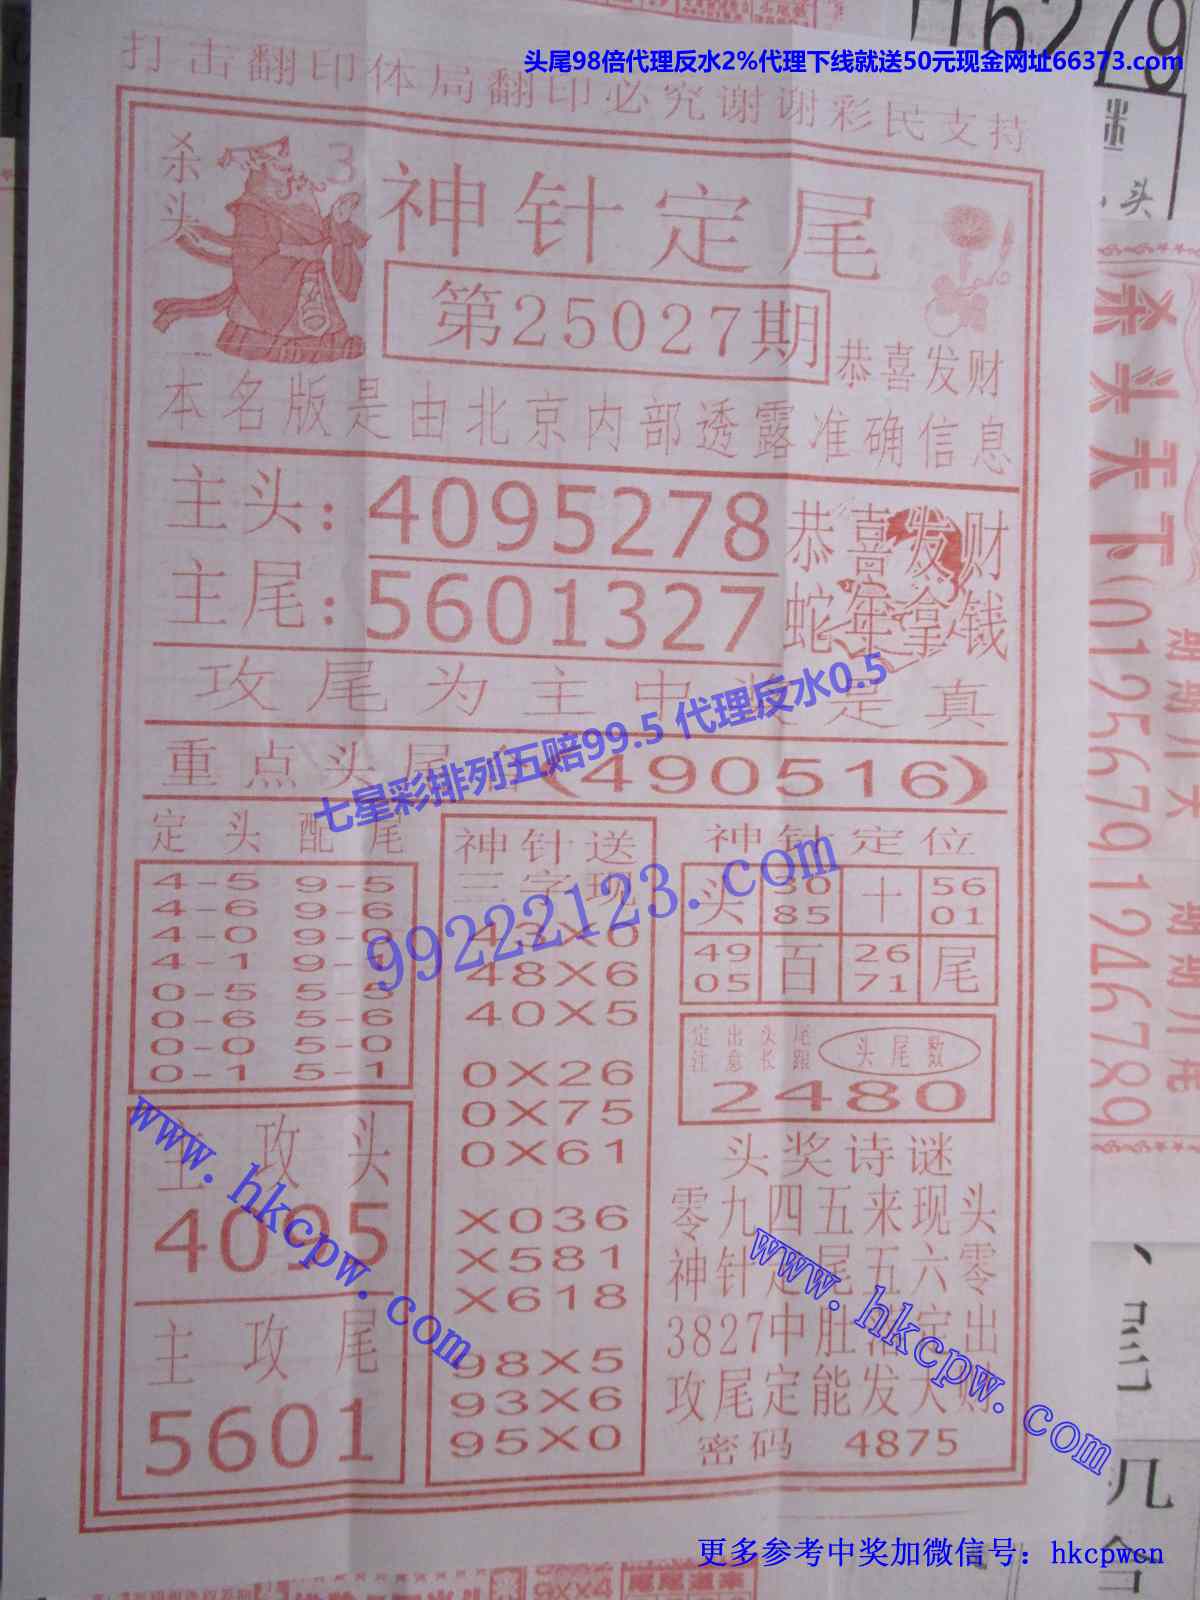 头尾98倍代理反水2%代理下线就送50元现金网址66373.com
打击翻印体局翻印必究谢谢彩民支持
杀头 3
神针定尾
第25027期
恭喜发财
本名版是由北京内部透露准确信息
主头:4095278
主尾:5601327
恭喜发财
蛇年拿钱
攻尾为主中奖是真
七星彩排列五赔99.5 代理反水0.5
重点头尾
(490516)
99222123.com
定头配尾
4-5 9-5
4-6 9-6
4-0 9-0
4-1 9-1
0-5 5-5
0-6 5-6
0-0 5-0
0-1 5-1
主攻头
4095
主攻尾
5601
神针送
三字现
43X0
48X6
40X5
0X26
0X75
0X61
X036
X581
X618
98X5
93X6
95X0
神针定位
头 30 85 十 56 01
49 05 百 26 71 尾
定出头尾
注意长跟
头尾数
2480
头奖诗谜
零九四五来现头
神针定尾五六零
3827中肚
定出
攻尾定能发大财
密码 4875
www.hkcpw.com
www.hkcpw.com
更多参考中奖加微信号: hkcpwcn
杀头天下(01256791246789
9XX4